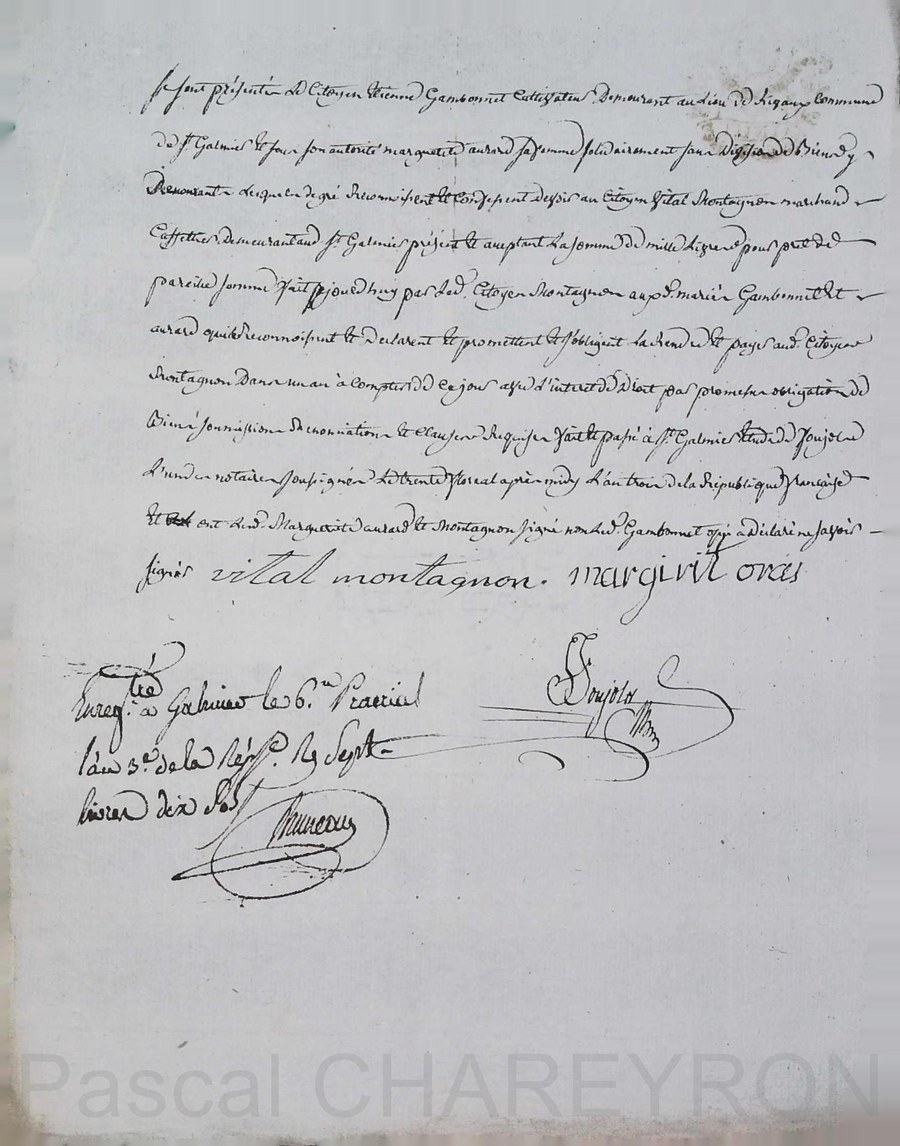 se sont présenté Le Citoyen Etienne Gambonnet Cultivateur Demeurant au Lieu de Commune
de St Galmier Et sous son autorité marguerite aurard sa femme solidairement sans Division de Bien et y
Renonçant Lesquels de gré Reconnoissent et Confessent devoir au Citoyen Vital Montagnon marchand
Demeurant aud St Galmier présent et acceptant La somme de mille Livre pour pret de
pareille somme fait ce jourdhuy par Led. Citoyen Montagnon auxd. mariés Gambonnet Et
aurard quils reconnoissent et Déclarent et promettent et s'obligent La Rendre et payer aud. Citoyen
Montagnon Dans un an à Compter de ce jour avec L'interet de Droit par promesse obligation de
Bien soumission Renonciation et Clauses Requises fait et passé à St Galmier Etude de Poujola
L'un des notaires soussignés Le trente floreal après midy L'an trois de la République française
Et ont Lesd. Marguerite aurard et Montagnon signé non Led. Gambonnet qui a Déclaré ne savoir
signer vital montagnon. margirit orar
Poujola
Enregtré à Galmier le 6. Prairial
l'an 3e. de la Répque. R Sept
livres dix Sols
Bruneau
Pascal CHAREYRON